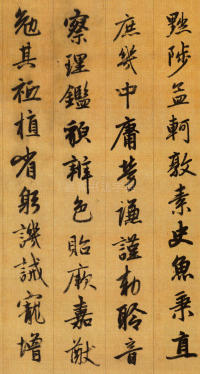 黜陟孟軻敦素史魚秉直
庶幾中庸勞謙謹勅聆音
察理鑑貌辨色貽厥嘉猷
勉其祗植省躬譏誡寵增